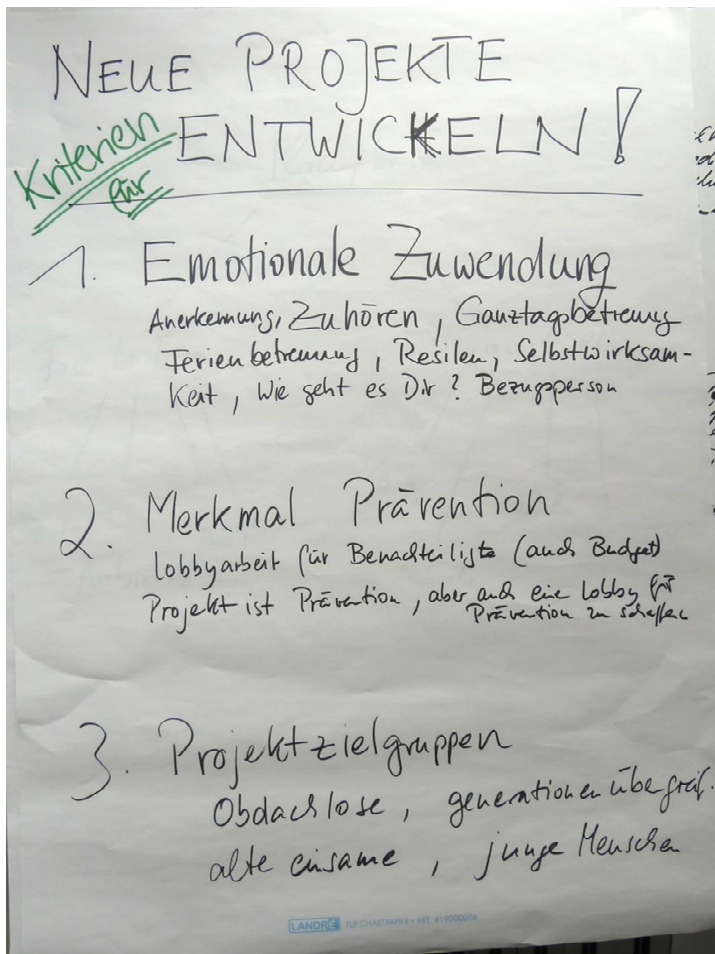 NEUE PROJEKTE
Kriterien für
ENTWICKELN!
1. Emotionale Zuwendung
Anerkennung, Zuhören, Ganztagsbetreuung
Ferienbetreuung, Resilen, Selbstwirksam-
keit, Wie geht es Dir? Bezugsperson
2. Merkmal Prävention
Lobbyarbeit für Benachteiligte (auch Budget)
Projekt ist Prävention, aber auch eine Lobby für
Prävention zu schaffen
3. Projektzielgruppen
Obdachlose, generationenübergreif.
alte einsame, junge Menschen
LANDRÉ FLIPCHARTPAPIER • ART. 419000006